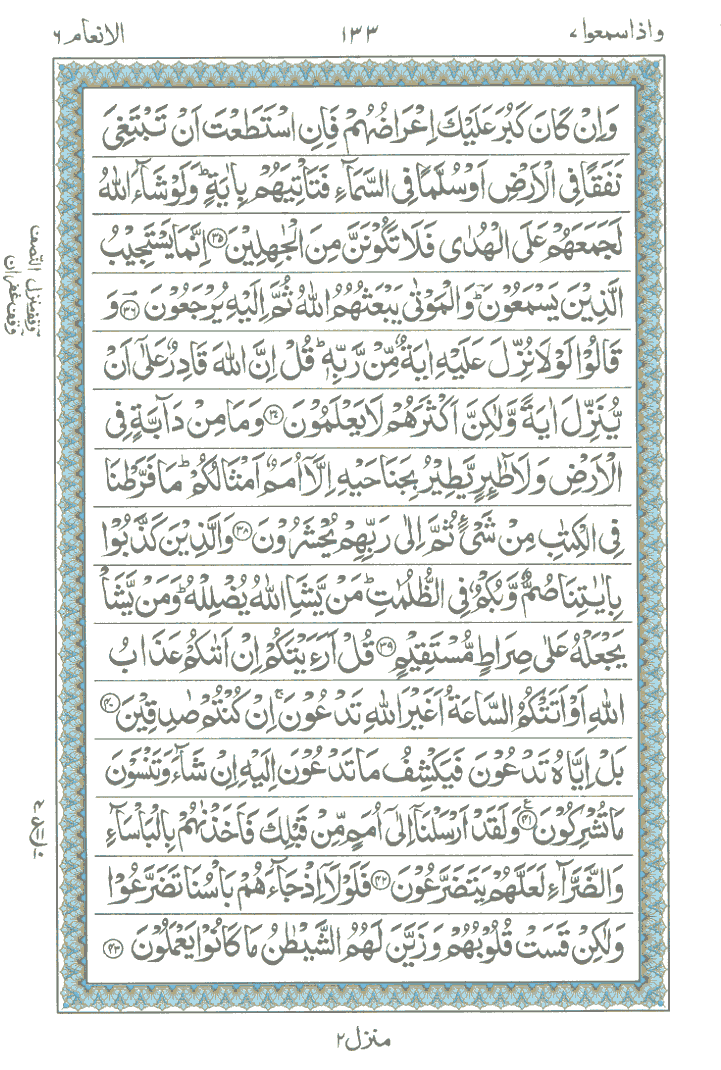 واذا سمعوا ٧
١٣٣
الانعام ٦
وَاِنْ كَانَ كَبُرَ عَلَيْكَ اِعْرَاضُهُمْ فَاِنِ اسْتَطَعْتَ اَنْ تَبْتَغِيَ
نَفَقًا فِي الْاَرْضِ اَوْ سُلَّمًا فِي السَّمَآءِ فَتَاْتِيَهُمْ بِاٰيَةٍ ؕ وَلَوْ شَآءَ اللّٰهُ
لَجَمَعَهُمْ عَلَى الْهُدٰى فَلَا تَكُوْنَنَّ مِنَ الْجٰهِلِيْنَ ﴿۳۵﴾ اِنَّمَا يَسْتَجِيْبُ
الَّذِيْنَ يَسْمَعُوْنَ ؕ وَالْمَوْتٰى يَبْعَثُهُمُ اللّٰهُ ثُمَّ اِلَيْهِ يُرْجَعُوْنَ ﴿۳۶﴾ وَ
قَالُوْا لَوْلَا نُزِّلَ عَلَيْهِ اٰيَةٌ مِّنْ رَّبِّهٖ ؕ قُلْ اِنَّ اللّٰهَ قَادِرٌ عَلٰٓى اَنْ
يُّنَزِّلَ اٰيَةً وَّلٰكِنَّ اَكْثَرَهُمْ لَا يَعْلَمُوْنَ ﴿۳۷﴾ وَمَا مِنْ دَآبَّةٍ فِي
الْاَرْضِ وَلَا طٰٓئِرٍ يَّطِيْرُ بِجَنَاحَيْهِ اِلَّآ اُمَمٌ اَمْثَالُكُمْ ؕ مَا فَرَّطْنَا
فِي الْكِتٰبِ مِنْ شَيْءٍ ثُمَّ اِلٰى رَبِّهِمْ يُحْشَرُوْنَ ﴿۳۸﴾ وَالَّذِيْنَ كَذَّبُوْا
بِاٰيٰتِنَا صُمٌّ وَّبُكْمٌ فِي الظُّلُمٰتِ ؕ مَنْ يَّشَاِ اللّٰهُ يُضْلِلْهُ ؕ وَمَنْ يَّشَاْ
يَجْعَلْهُ عَلٰى صِرَاطٍ مُّسْتَقِيْمٍ ﴿۳۹﴾ قُلْ اَرَءَيْتَكُمْ اِنْ اَتٰىكُمْ عَذَابُ
اللّٰهِ اَوْ اَتَتْكُمُ السَّاعَةُ اَغَيْرَ اللّٰهِ تَدْعُوْنَ ۚ اِنْ كُنْتُمْ صٰدِقِيْنَ ﴿۴۰﴾
بَلْ اِيَّاهُ تَدْعُوْنَ فَيَكْشِفُ مَا تَدْعُوْنَ اِلَيْهِ اِنْ شَآءَ وَتَنْسَوْنَ
مَا تُشْرِكُوْنَ ﴿۴۱﴾ وَلَقَدْ اَرْسَلْنَآ اِلٰٓى اُمَمٍ مِّنْ قَبْلِكَ فَاَخَذْنٰهُمْ بِالْبَاْسَآءِ
وَالضَّرَّآءِ لَعَلَّهُمْ يَتَضَرَّعُوْنَ ﴿۴۲﴾ فَلَوْلَآ اِذْ جَآءَهُمْ بَاْسُنَا تَضَرَّعُوْا
وَلٰكِنْ قَسَتْ قُلُوْبُهُمْ وَزَيَّنَ لَهُمُ الشَّيْطٰنُ مَا كَانُوْا يَعْمَلُوْنَ ﴿۴۳﴾
منزل ٢
النصف
وقف منزل
وقف غفران